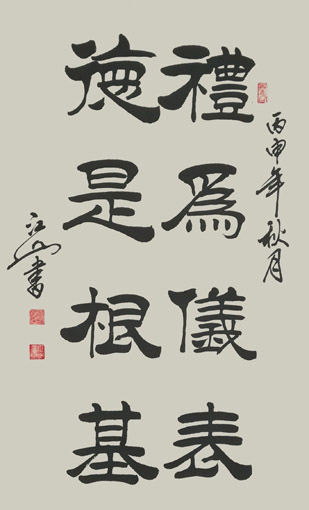 丙申年秋月
禮為儀表
德是根基
江山書